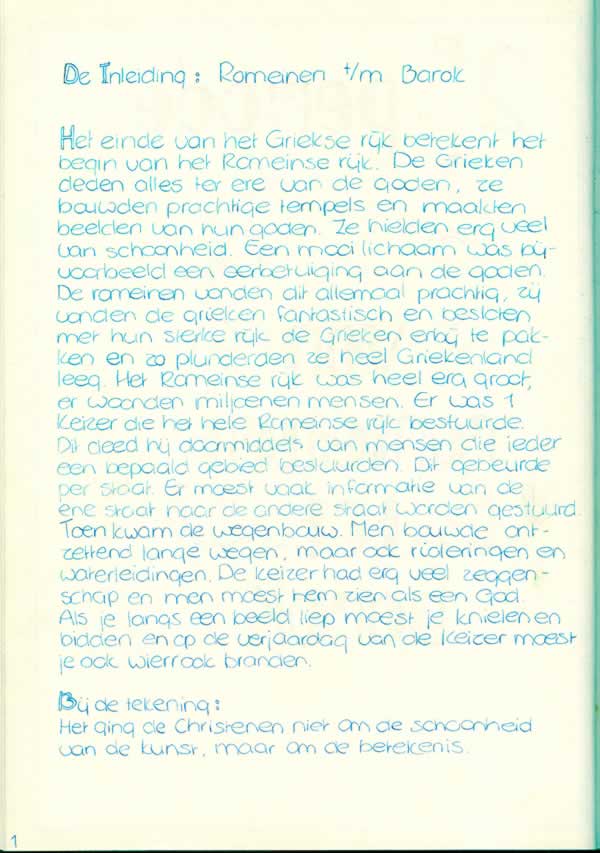 De Inleiding: Romeinen t/m Barok
Het einde van het Griekse rijk betekent het
begin van het Romeinse rijk. De Grieken
deden alles ter ere van de goden, ze
bouwden prachtige tempels en maakten
beelden van hun goden. Ze hielden erg veel
van schoonheid. Een mooi lichaam was bij-
voorbeeld een eerbetuiging aan de goden.
De romeinen vonden dit allemaal prachtig, zij
vonden de grieken fantastisch en besloten
met hun sterke rijk de Grieken erbij te pak-
ken en zo plunderden ze heel Griekenland
leeg. Het Romeinse rijk was heel erg groot,
er woonden miljoenen mensen. Er was 1
Keizer die het hele Romeinse rijk bestuurde.
Dit deed hij doormiddels van mensen die ieder
een bepaald gebied bestuurden. Dit gebeurde
per staat. Er moest vaak informatie van de
ene staat naar de andere staat worden gestuurd.
Toen kwam de wegenbouw. Men bouwde ont-
zettend lange wegen, maar ook rioleringen en
waterleidingen. De Keizer had erg veel zeggen-
schap en men moest hem zien als een God.
Als je langs een beeld liep moest je knielen en
bidden en op de verjaardag van de Keizer moest
je ook wierrook branden.
Bij de tekening:
Het ging de Christenen niet om de schoonheid
van de kunst, maar om de betekenis.
1